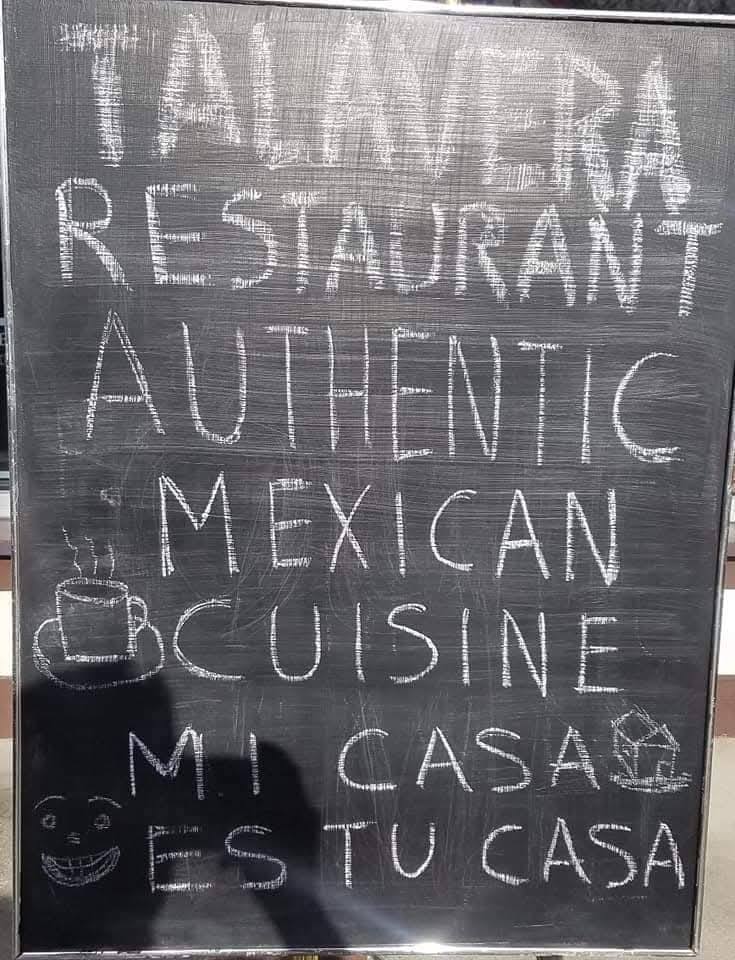 TALAVERA
RESTAURANT
AUTHENTIC
MEXICAN
CUISINE
MI CASA
ES TU CASA